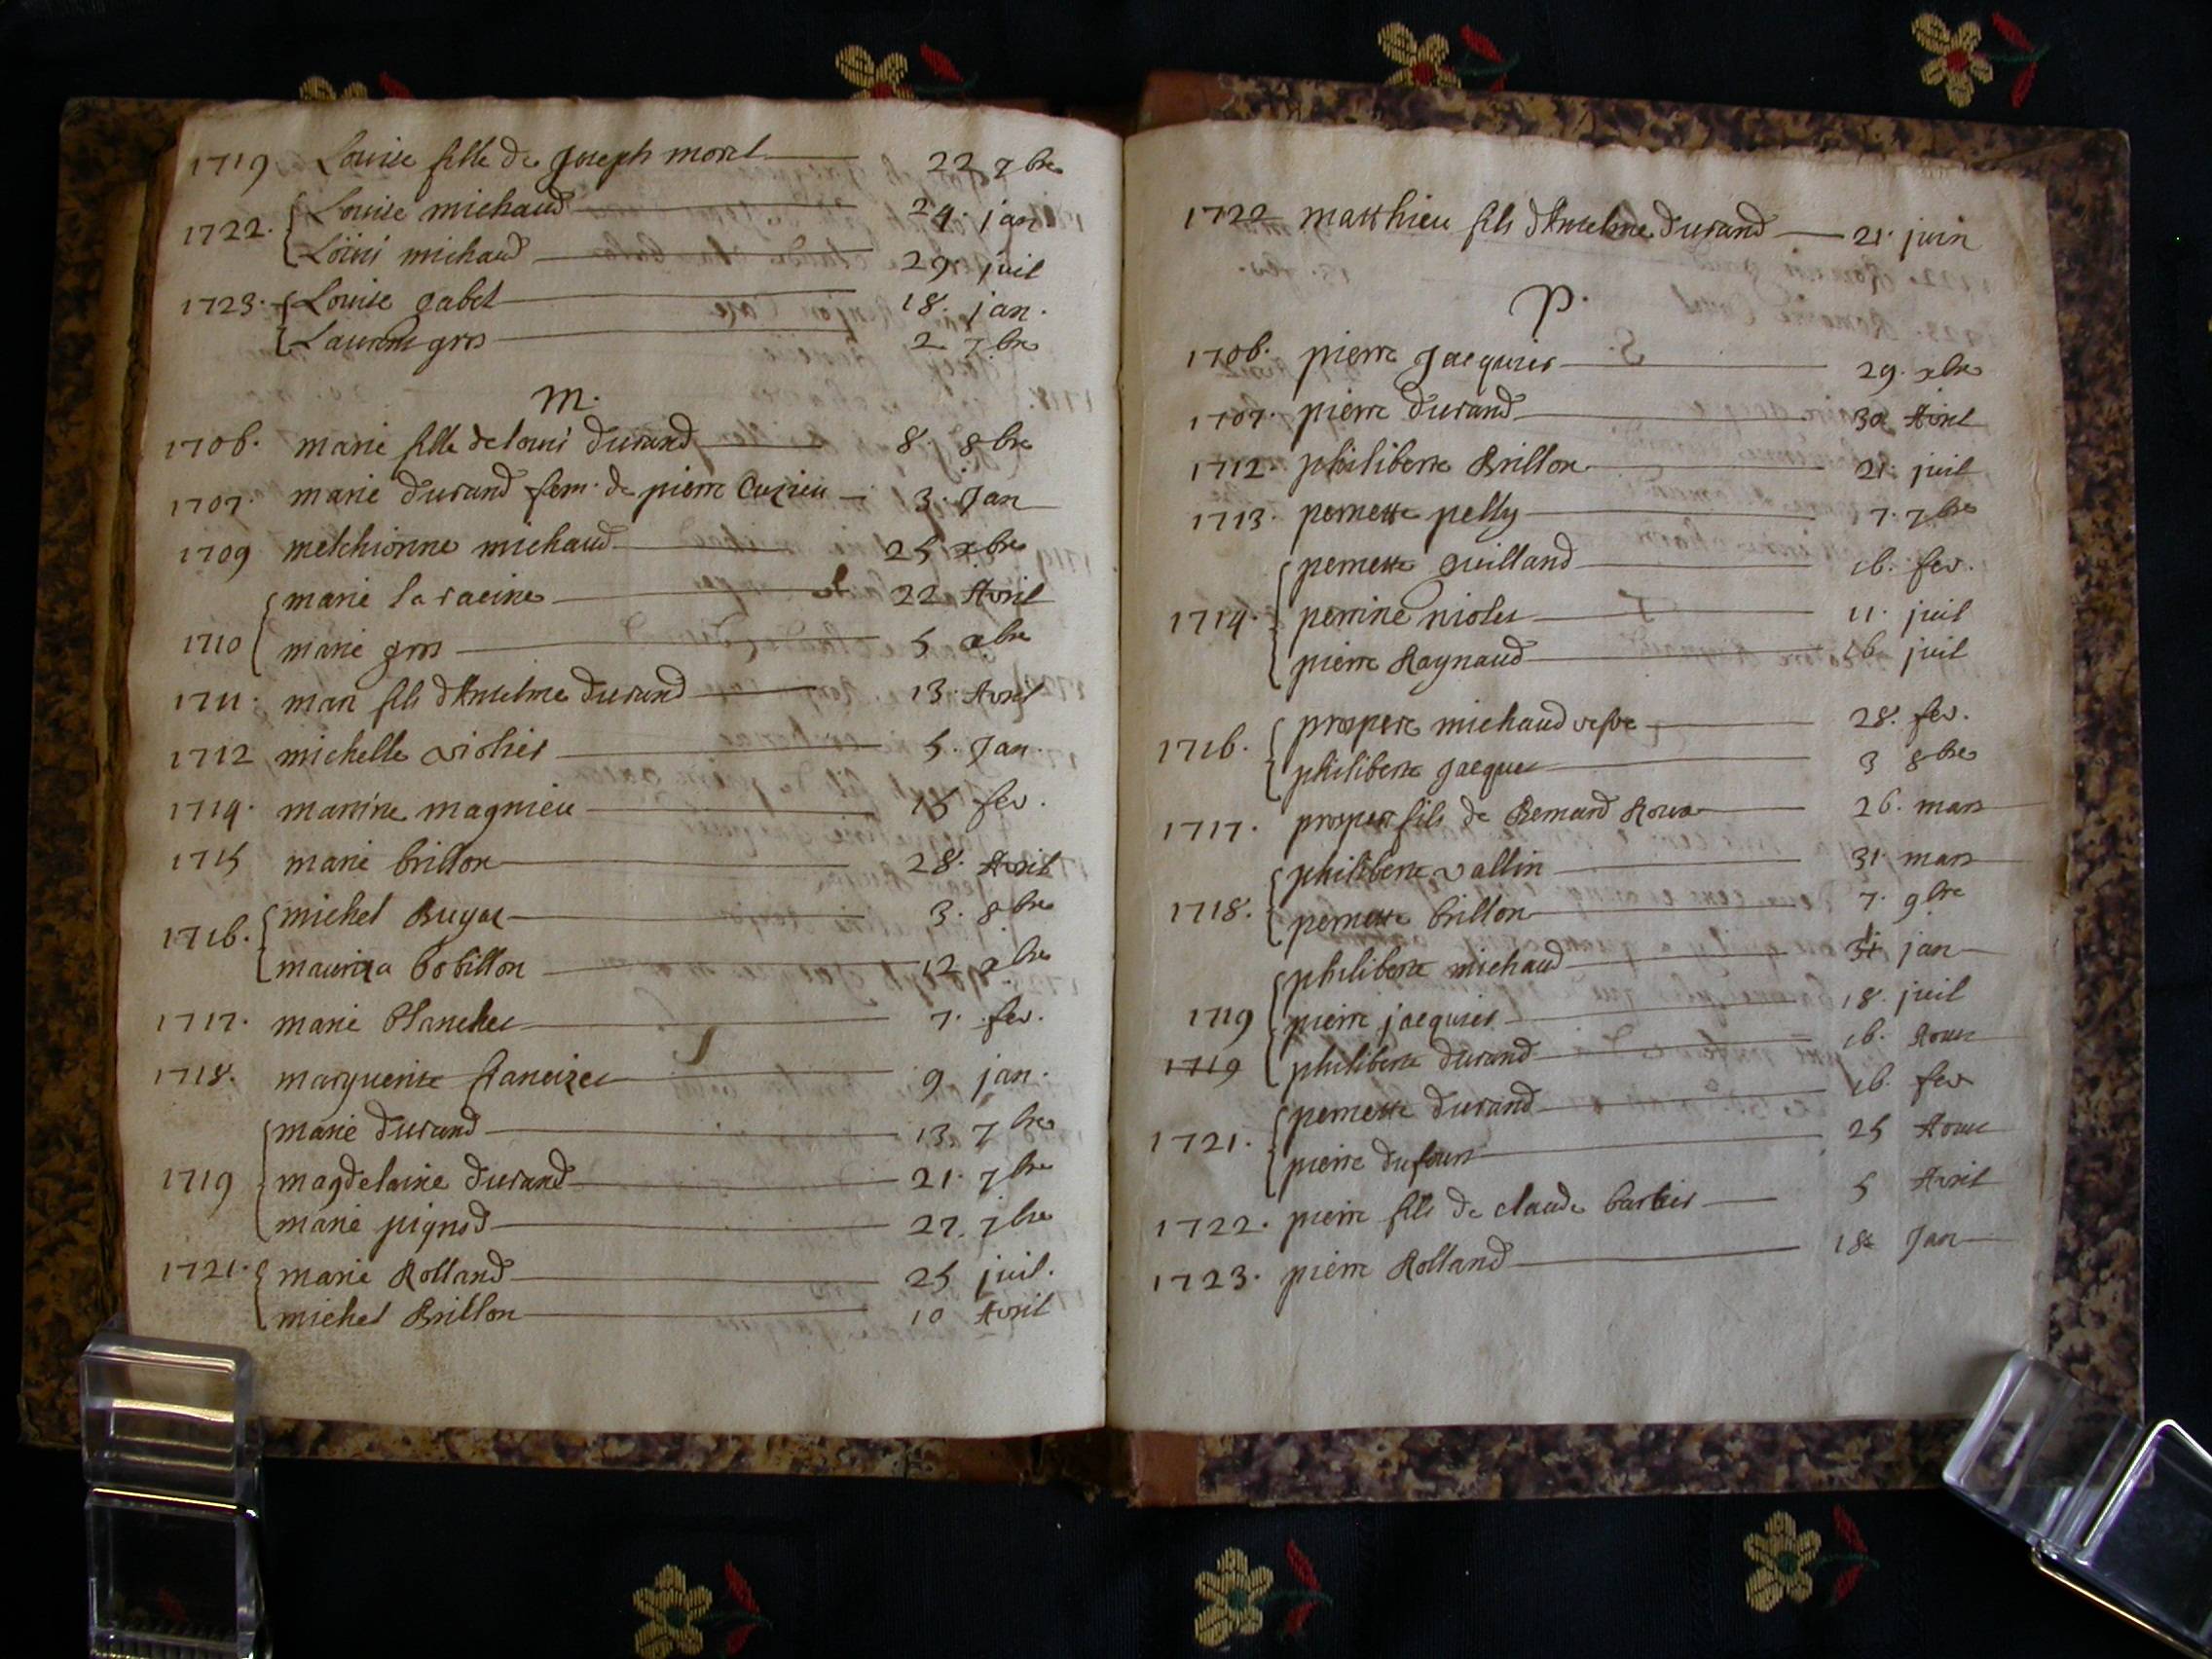 1719 Louise fille de Joseph morel 22 7bre
1722. Louise michaud 24. jan
Loüis michaud 29. juil
1723. Louise gabet 18. jan.
gros 2 7bre
m.
1706. marie fille de louis durand 8. 8bre
1707. marie durand fem. de pierre Cuzieu 3. Jan
1709 melchionne michaud 25 xbre
marie la racine 22 Avril
1710 marie gros 5 xbre
1711. marc fils d'Anselme durand 13. Avril
1712 michelle violier 5. Jan.
1714. martine magnieu 15 fev.
1715 marie brillon 28. Avril
michel Bugat 3. 8bre
1716. mauriza bobillon 12 xbre
1717. marie Planchet 7. fev.
1718. marguerite 9 jan.
marie durand 13. 7bre
1719 magdelaine durand 21. 7bre
marie pignod 27. 7bre
1721. marie Rolland 25 juil.
michel Brillon 10 Avril
1722 matthieu fils d'Anselme durand 21. juin
p.
1706. pierre Jacquier 29. xbre
1707. pierre durand 30 Avril
1712. philiberte Brillon 21. juil
1713. pernette pelly 7. 7bre
pernette guilland 16. fev.
1714. perrine 11. juil
pierre Raynaud 16 juil
1716. prospere michaud vefve 28. fev.
philiberte Jacquet 3 8bre
1717. prosper fils de Bernard 26. mars
philiberte vallin 31 mars
1718. pernette brillon 7. 9bre
philiberte michaud 31 jan
1719 pierre jacquier 18. juil
1719 philiberte durand 16. Aout
pernette durand 16. fev
1721. pierre dufour 25 Aout
1722. pierre fils de claude barbier 5 Avril
1723. pierre Rolland 18 Jan